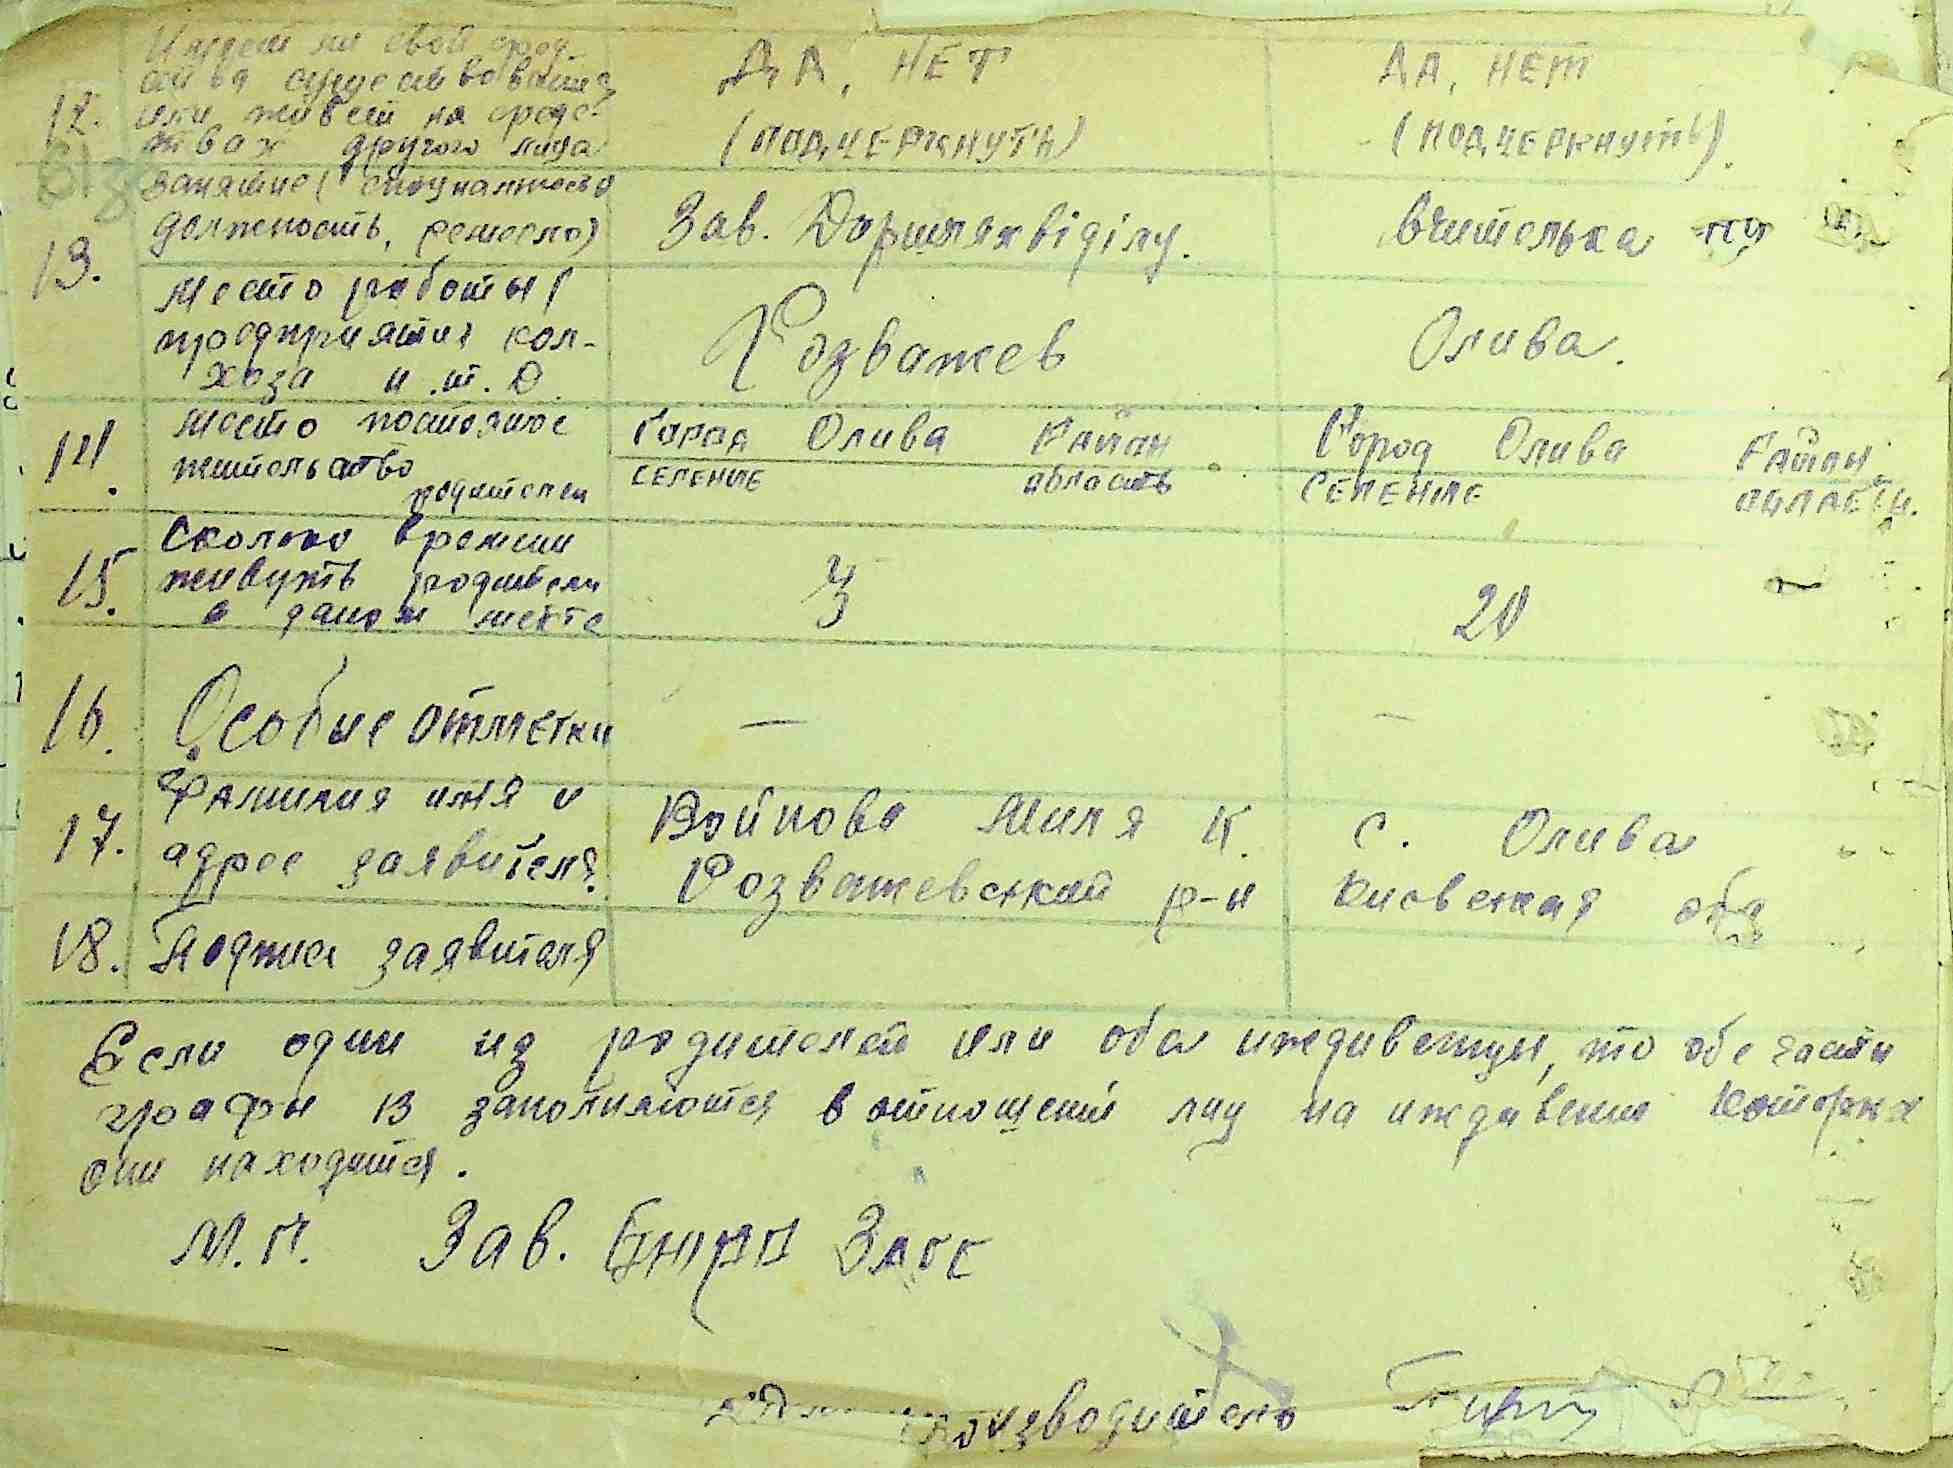 12. Имеет ли свои сред-
ства существования
или живет на средс-
твах другого лица
ДА, НЕТ
(ПОДЧЕРКНУТЬ)
ДА, НЕТ
(ПОДЧЕРКНУТЬ).
13. занятие (специальность
должность, ремесло)
Зав. Доршляхвіділу.
Вчителька
место работы (
предприятия кол-
хоза и.т.д
Розважев
Олива.
14. место постояное
жительство
родителей
Город Олива Район
СЕЛЕНИЕ область
Город Олива Район
СЕЛЕНИЕ ОБЛАСТИ.
15. Сколько времени
живуть родители
в даном месте
3
20
16. Особые отметки
—
—
17. Фамилия имя и
адрес заявителя.
Войнова Миля К.
Розважевский р-н
с. Олива
Киевская обл
18. Подписи заявителя
Если один из родителей или оба иждивенцы, то обе части
графы 13 заполняются в отношений лиц на иждивении которых
они находится.
М.П. Зав. Бюро Загс
производитель